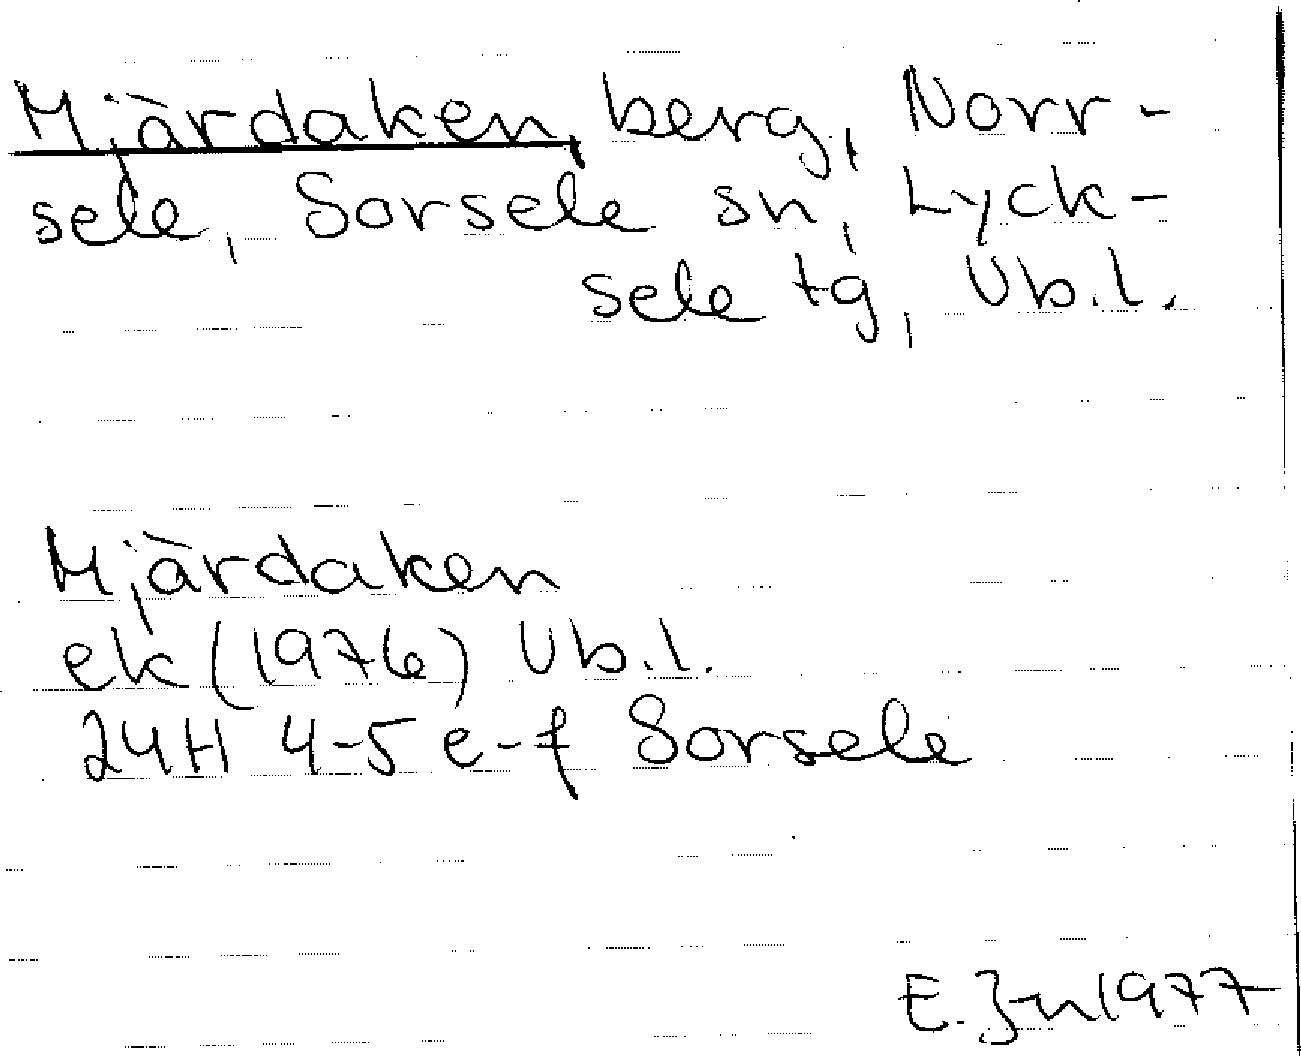 Mjärdaken, berg, Norr-
sele, Sorsele sn, Lyck-
sele tg, Vb.l.
Mjärdaken
ek (1976) Vb.l.
24H 4-5 e-f Sorsele
E. 1977